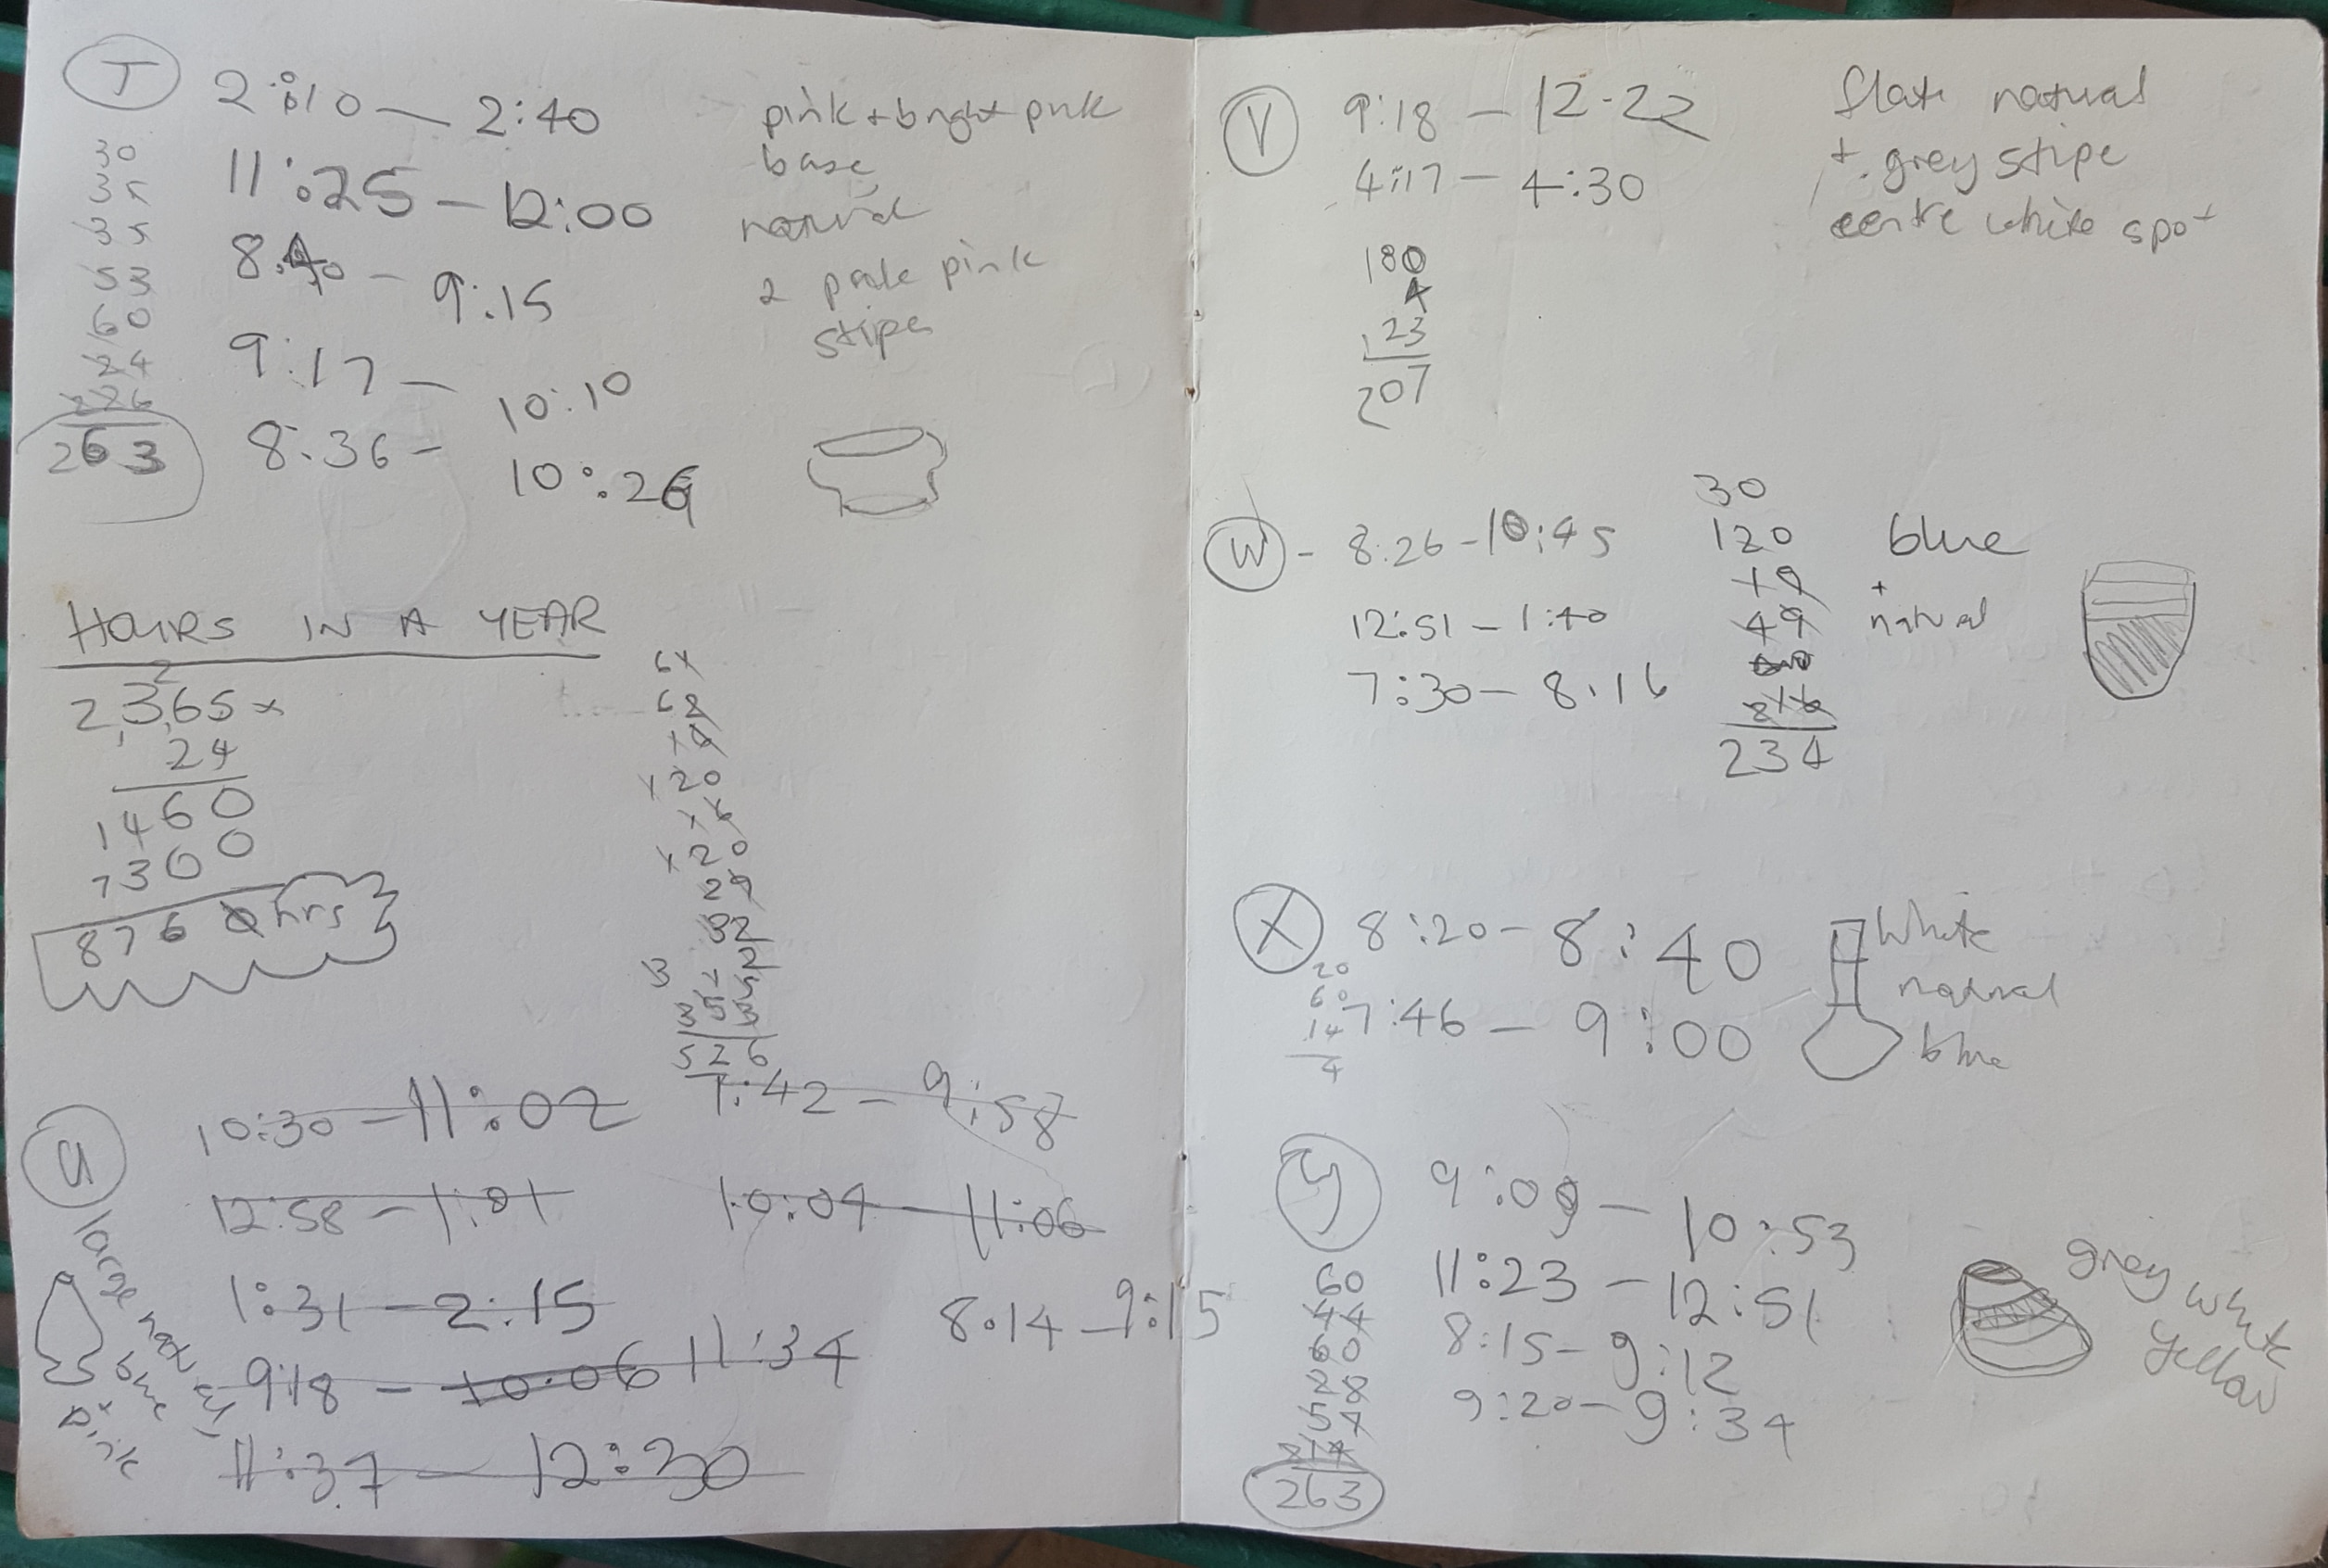 T
2:10 — 2:40
11:25 — 12:00
8:40 — 9:15
9:17 — 10:10
8:36 — 10:26
pink + bright pink
base
natural
2 pale pink
stripes
30
35
35
53
60
24
226
263
HOURS IN A YEAR
2
2365 x
24
1460
7300
8760 hrs
120
120
29
32
526
U
10:30 — 11:02
12:58 — 1:01
1:31 — 2:15
9:18 — 10:06 11:34
11:37 — 12:30
7:42 — 9:58
10:04 — 11:06
8:14 — 9:15
large natural
blue
pink
V
9:18 — 12.22
4:17 — 4:30
180
4
23
207
flate natural
+ grey stipe
centre white spot
W - 8:26 - 10:45
12:51 - 1:40
7:30 - 8.16
30
120
19
49
216
234
blue
+
natural
X
8:20 - 8:40
7:46 — 9:00
20
60
14
4
white
natural
blue
y
9:09 — 10:53
11:23 — 12:51
8:15 - 9:12
9:20 - 9:34
60
44
60
28
57
214
263
grey white
yellow